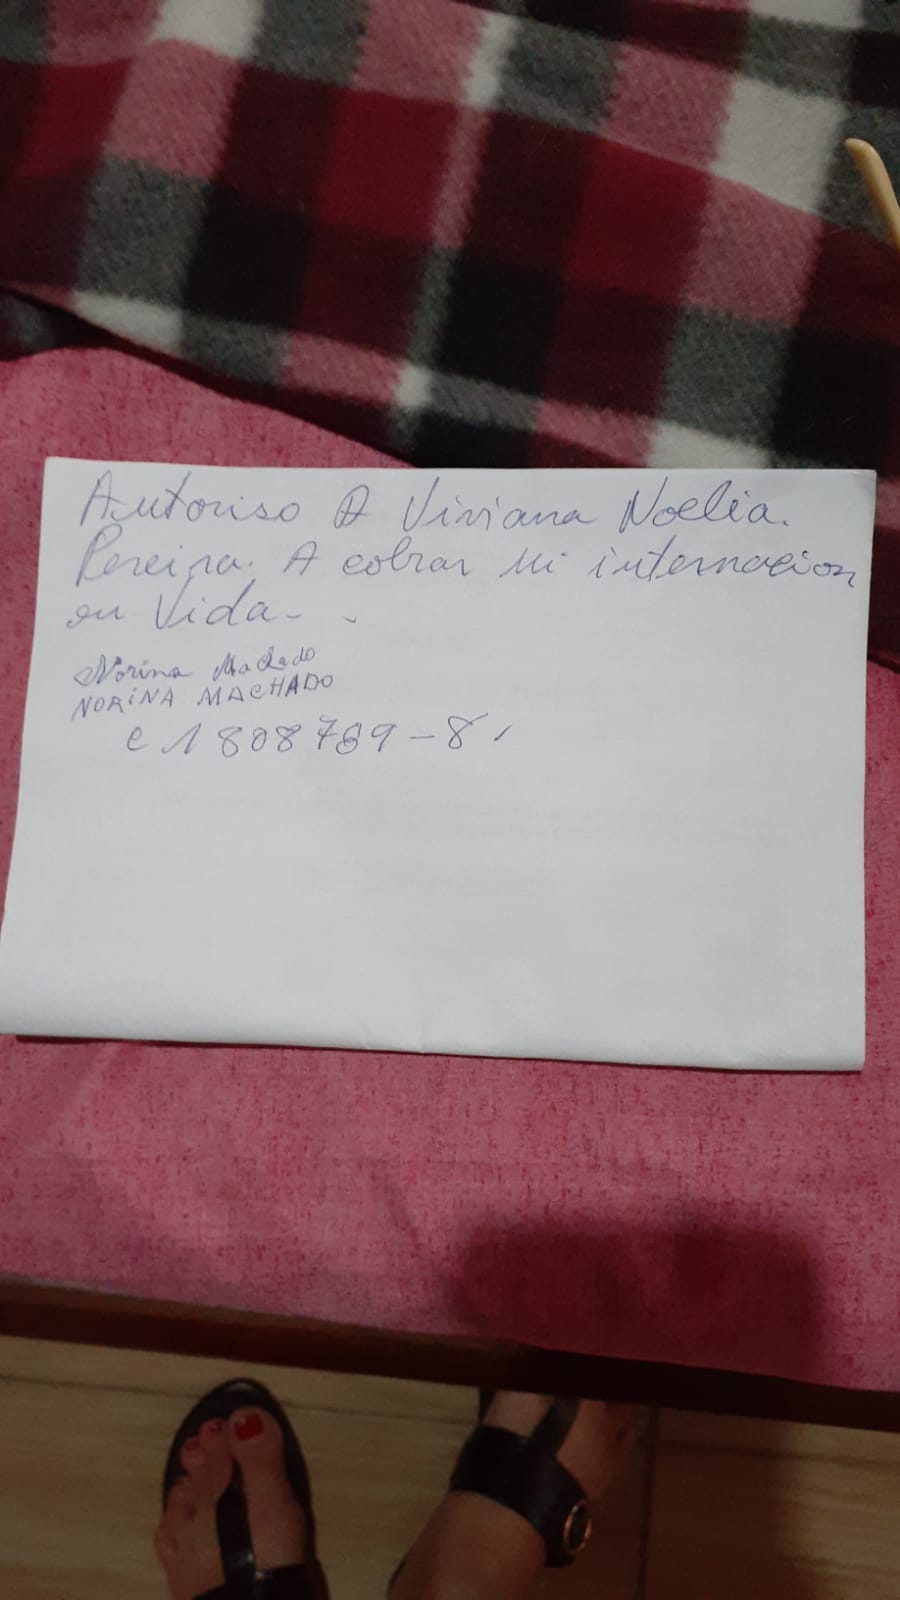 Autoriso A Viviana Noelia.
Pereira. A cobrar mi internacion
en Vida-
Norina Machado
NORINA MACHADO
c 1808769-8